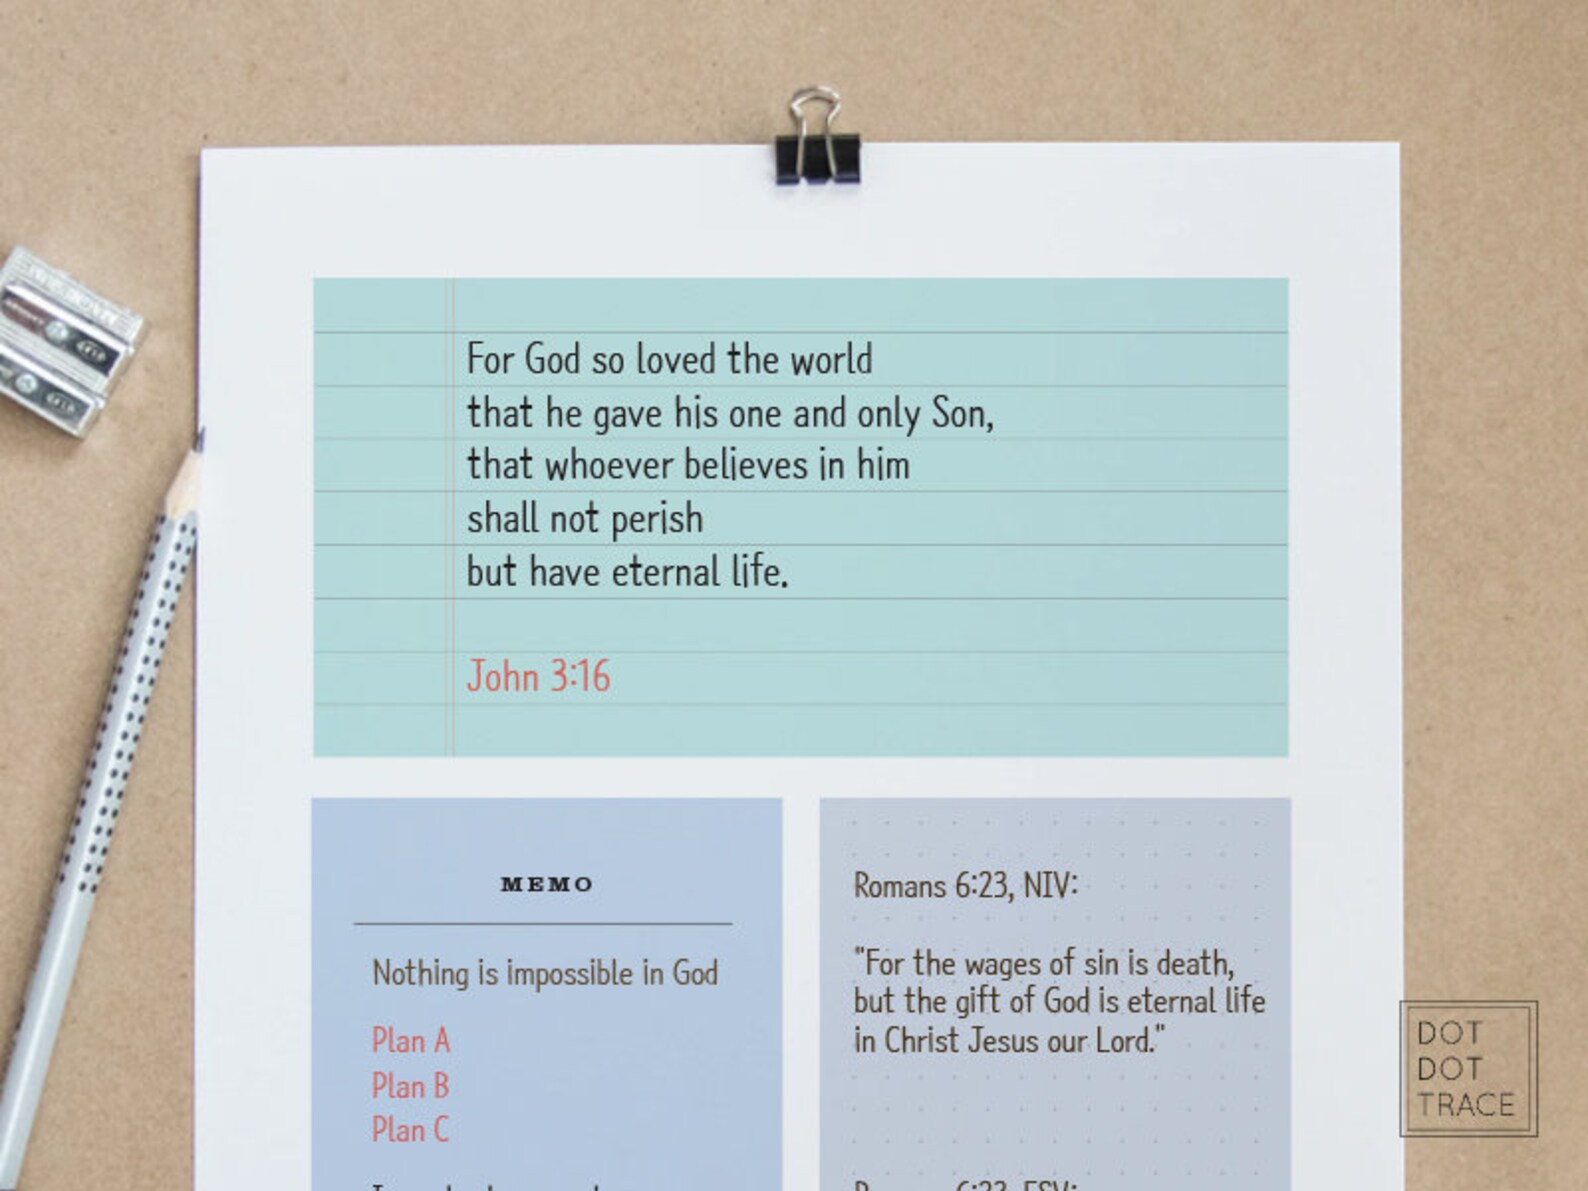 For God so loved the world
that he gave his one and only Son,
that whoever believes in him
shall not perish
but have eternal life.
John 3:16
MEMO
Nothing is impossible in God
Plan A
Plan B
Plan C
Romans 6:23, NIV:
"For the wages of sin is death,
but the gift of God is eternal life
in Christ Jesus our Lord."
6:23, ESV:
DOT
DOT
TRACE